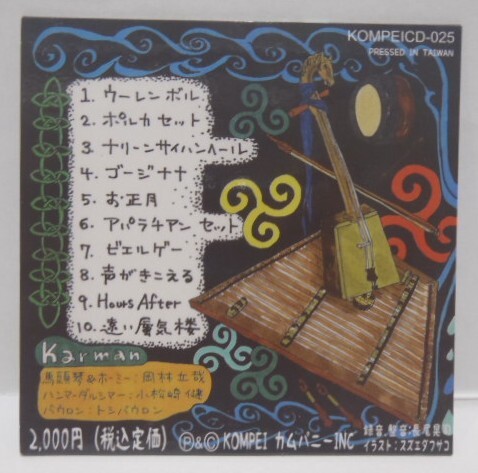 KOMPEICD-025
PRESSED IN TAIWAN
1. ウーレンボル
2. ポルカセット
3. ナリーンサイハンヘール
4. ゴージナナ
5. お正月
6. アパラチアンセット
7. ビエルゲー
8. 声がきこえる
9. Hours After
10. 遠い蜃気楼
Karman
馬頭琴&ホーミー:岡林立哉
ハンマーダルシマー:小松崎健
バウロン:トシバウロン
2,000円 (税込定価) Ⓟ&© KOMPEI カムパニーINC
録音、整音:長尾
イラスト:スズエダフサコ